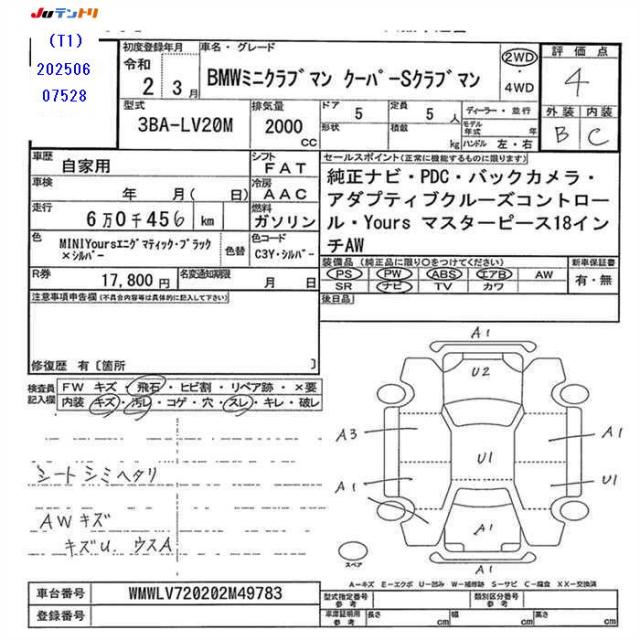 JUテントリ
(T1)
202506
07528
初度登録年月
令和
2 年 3月
車名・グレード
BMWミニクラブマン クーパーSクラブマン
2WD
・
4WD
評価点
4
外装 内装
B C
型式
3BA-LV20M
排気量
2000
CC
ドア
5
形状
定員
5 人
積数
kg
ディーラー・並行
モデル年式 年
ハンドル 左・右
車歴
自家用
シフト
FAT
車検
年 月( 日)
冷房
AAC
走行
6万0千456 km
燃料
ガソリン
色
MINIYoursエニグマティック・ブラック
×シルバー
色替
色コード
C3Y・シルバー
R券
17,800円
名変通知期限
月 日
セールスポイント(正常に機能するものに限ります)
純正ナビ・PDC・バックカメラ・
アダプティブクルーズコントロー
ル・Yours マスターピース18イン
チAW
装備品(純正品に限り○をつけてください)
PS PW ABS エアB AW
SR ナビ TV カワ
新車保証書
有・無
後日品
注意事項申告欄(不具合内容等は具体的に記入して下さい)
修復歴 有〔箇所 〕
検査員
記入欄
FW キズ・飛石・ヒビ割・リペア跡・×要
内装 キズ・汚レ・コゲ・穴・スレ・キレ・破レ
シート シミ ヘタリ
AW キズ
キズU. ウスA
A1
U2
A3
A1
U1
A1
U1
A1
A1
スペア
A-キズ E-エクボ U-凹み W-補修跡 S-サビ C-腐食 XX-交換済
車台番号
WMWLV720202M49783
登録番号
型式指定番号
参考
類別区分番号
参考
車庫証明用
参考
長さ cm
幅 cm
高さ cm